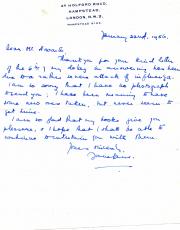 HOLFORD ROAD,
HAMPSTEAD,
LONDON, N.W.3.
HAMPSTEAD
January 22nd, 1950.
Dear Mr.
Thank you for your kind letter
of the 6th; my delay in answering has been
due to a rather severe attack of influenza.
I am so sorry that I have no photograph
to send you; I have been meaning to have
some new ones taken, but never seem to
get time.
I am so glad that my books give you
pleasure. I hope that I shall be able to
continue to entertain you with them.
Yours sincerely,